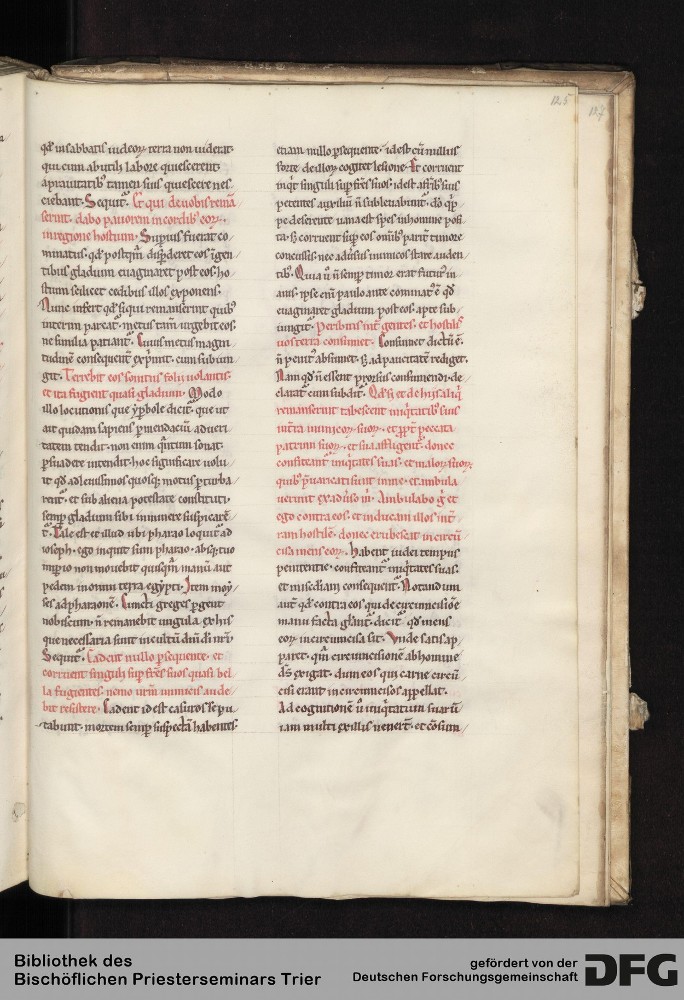 125
127
qd' in sabbatis iudeoꝝ terra non uiderat·
qui cum ab utili labore quiescerent·
a prauitatib; tamen suis quiescere nes
ciebant· Sequit᷑· Et qui de uobis remā
serint· dabo pauorem in cordib; eoꝝ·
in regione hostium· Supius fuerat co
minatus· qd' postqm̄ disperderet eos ī gen
tibus gladium euaginaret post eos· ho
stium scilicet cedibus illos exponens·
Nunc infert qd' si qui remanserint quib;
interim parcat᷑· metus tam̄ urgebit eos·
ne similia patiant᷑· Cuius metus magni
tudinē consequent᷑ exprimit· cum subiun
git· Terrebit eos sonitus folii uolantis·
et ita fugient quasi gladium· Modo
illo locutionis que yperbole dicit᷑· que ut
ait quidam sapiens p mendaciū ad ueri
tatem tendit· non enim quītum sonat·
psuadere intendit· hoc significare uolu
it qd' ad leuissimos quosq; motus pturba
rent᷑· et sub aliena potestate constituti·
semp gladium sibi imminere suspicarē
t᷑· Tale est et illud ubi pharao loquit᷑ ad
ioseph· ego inquit sum pharao· absq; tuo
impio non mouebit quisqm̄ manū aut
pedem in omni terra egypti· Item moy
ses ad pharaonē· Cuncti greges pgent
nobiscum· n̄ remanebit ungula ex his
que necessaria sunt in cultū dn̄i dī nr̄i·
Sequit᷑· Cadent nullo psequente· et
corruent singuli sup fr̄es suos quasi bel
la fugientes· nemo urm̄ inimicis aude
bit resistere· Cadent id est casuros se pu
tabunt· mortem semp suspectā habentes·
etiam nullo psequente· id est cū nullus
forte de illoꝝ cogitet lesione· Et corruent
inqt singuli sup fr̄es suos· id est a frīb; suis
petentes auxiliū n̄ subleuabunt᷑· dō qppe
pe deserente uana est spes in homine posi
ta· s; corruent sup eos om̄ib; parit̄ timore
concussis· nec aduersus inimicos stare auden
tib;· Quia ū n̄ semp timor erat futur' in
anis· ipse eni paulo ante cominat᷑ ē qd'
euaginaret gladium post eos· apte sub
iungit᷑· Peribitis int̄ gentes· et hostilis
uos terra consumet· Consumet dictū ē·
n̄ penit' absumet· s; ad paucitatē rediget·
Nam qd' n̄ essent prorsus consumendi· de
clarat᷑ cum subdit᷑· Qd' si et de his aliq
remanserint tabescent in iniqtatib; suis
in terra inimicoꝝ suoꝝ· et ppt̄ peccata
patrum suoꝝ· et sua affligent᷑· donec
confiteant᷑ iniqtates suas· et maioꝝ suoꝝ·
quib; puaricati sunt in me· et ambula
uerunt ex aduso m̄· Ambulabo g̊ et
ego contra eos· et inducam illos in t̄
ram hostilē· donec erubescat incircū
cisa mens eoꝝ· Habent iudei tempus
penitentie· confiteant᷑ iniqtates suas·
et misediam consequent᷑· Notandum
aut̄ qd' contra eos qui de circumcisiōe
manu facta gl̄ant᷑· dicit᷑· qd' mens
eoꝝ incircumcisa sit· Vnde satis ap
paret· qm̄ circumcisionē ab homine
ds̄ exigat· dum eos qui carne circū
cisi erant incircumcisos appellat·
Ad cognitionē ū iniqtatum suarū
iam multi ex illis uener̄t· et cōsum
Bibliothek des
Bischöflichen Priesterseminars Trier
gefördert von der
Deutschen Forschungsgemeinschaft
DFG